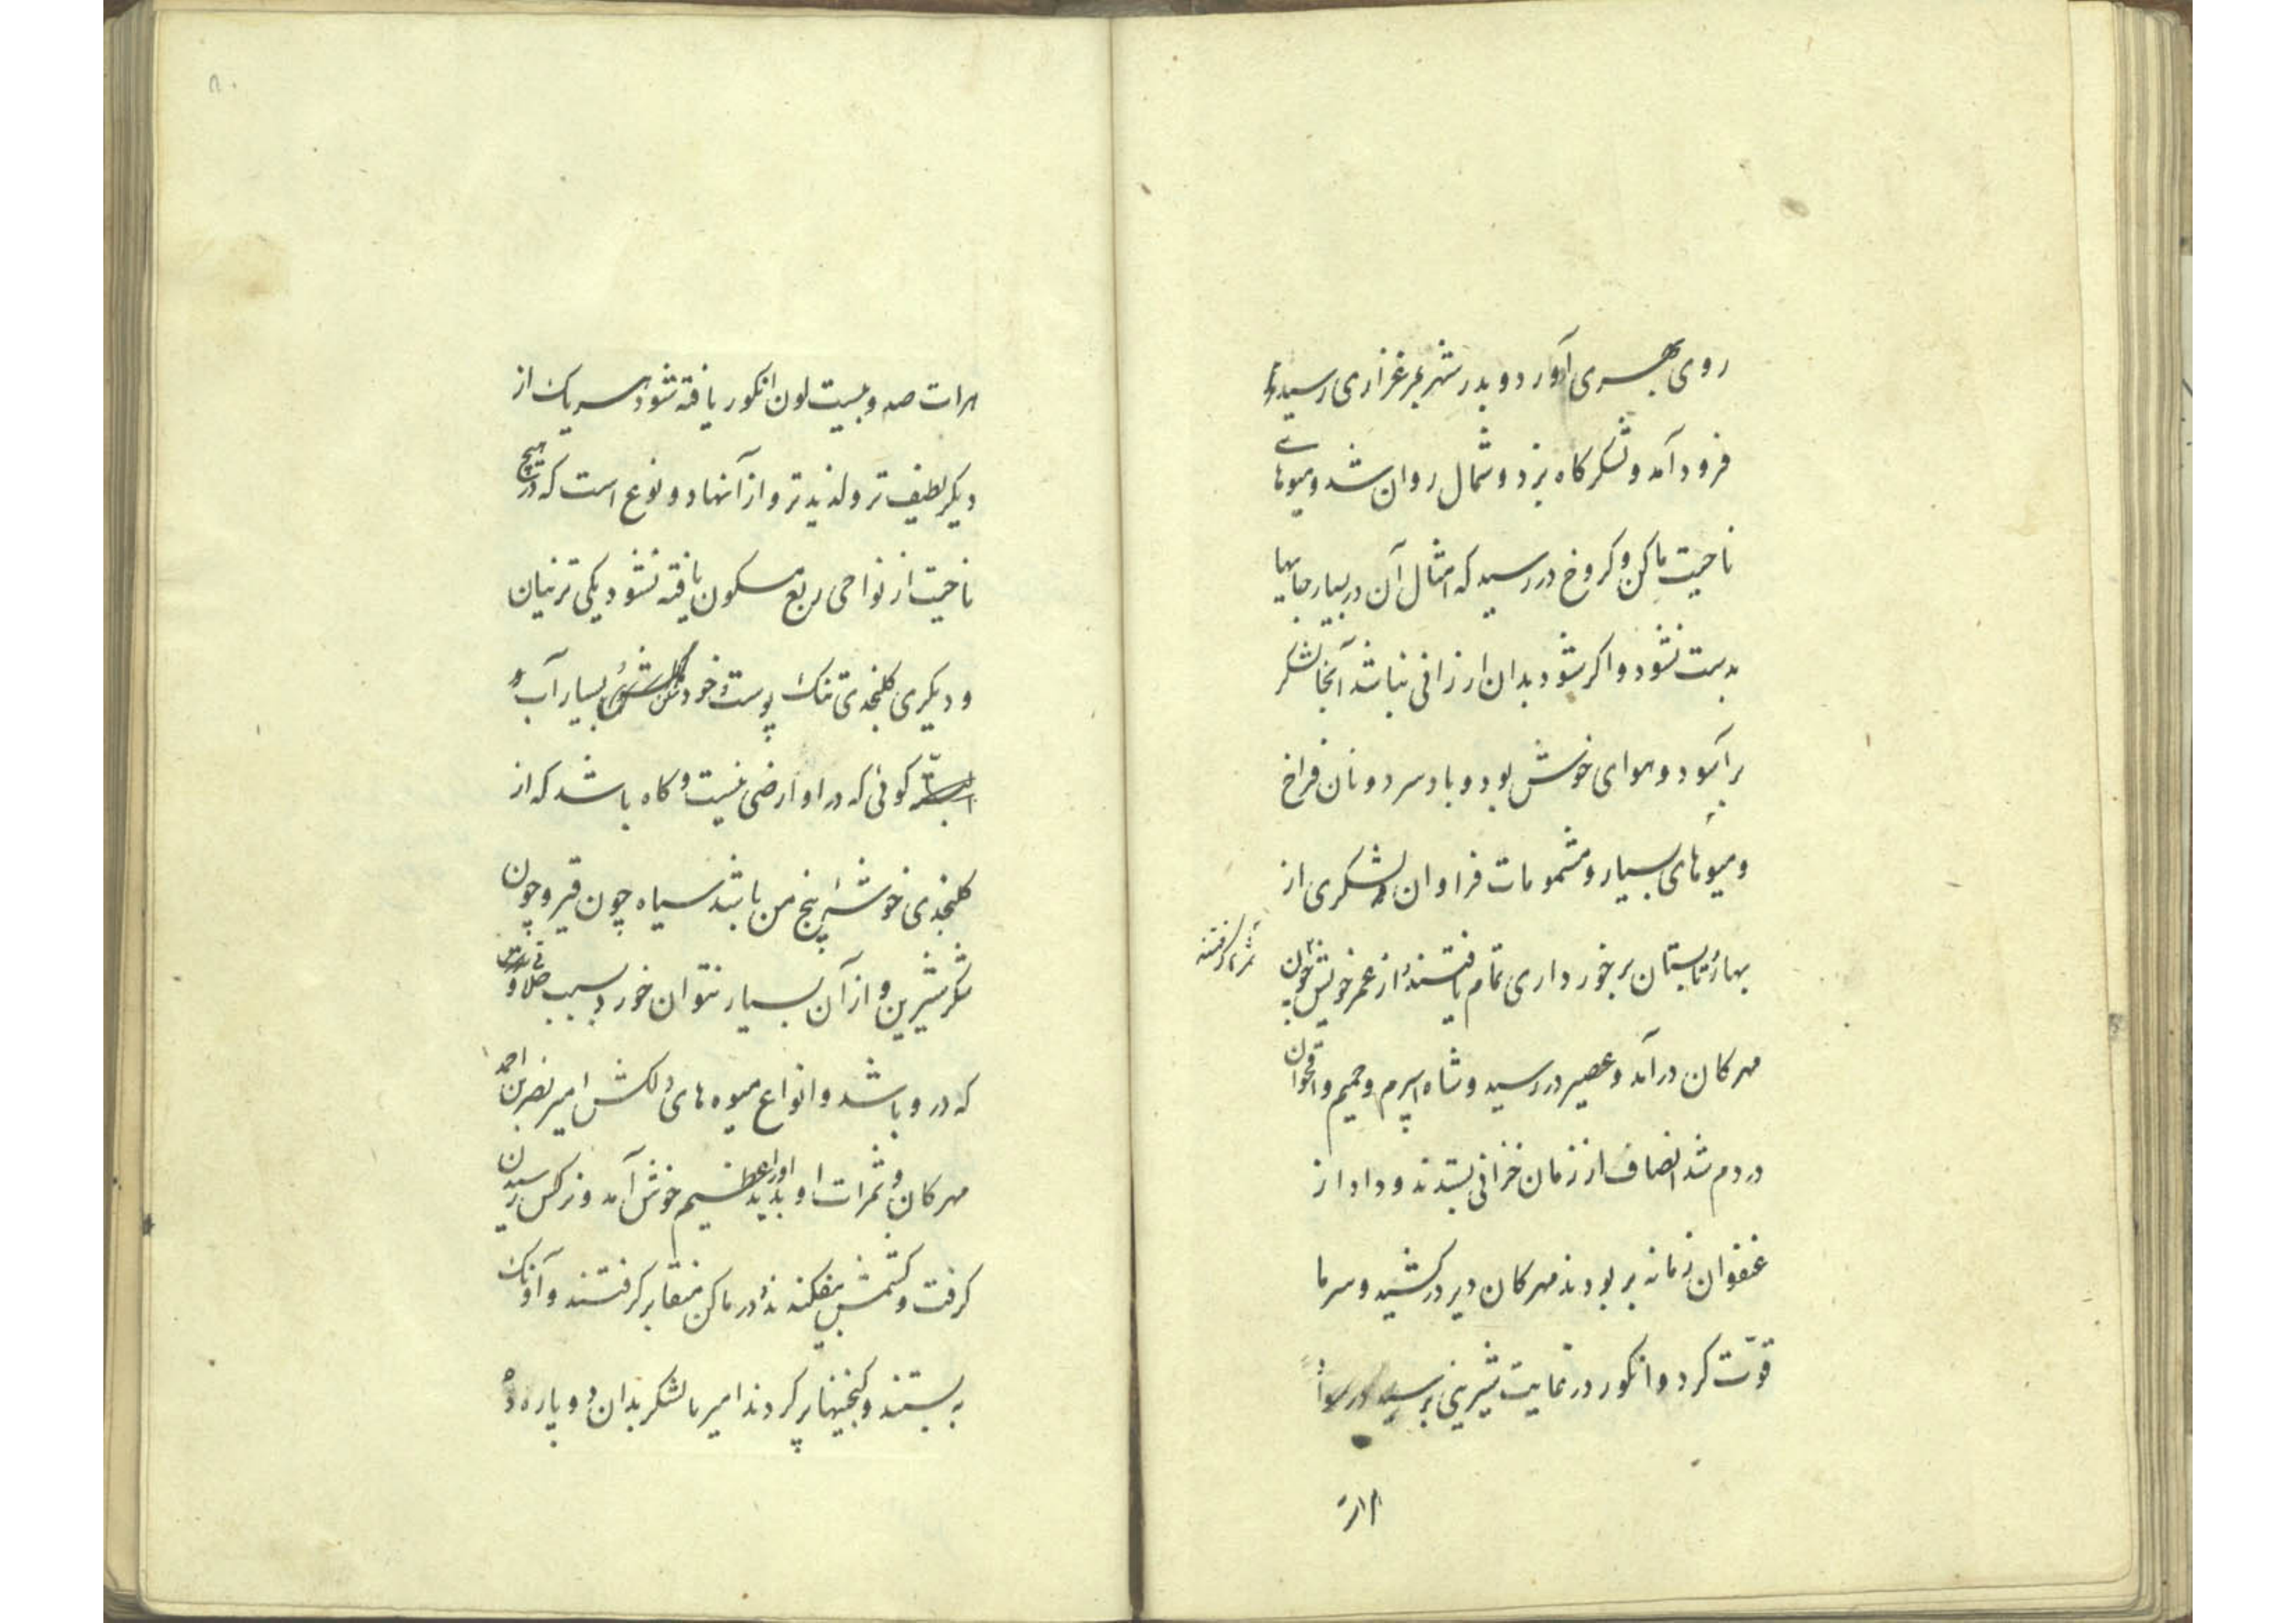 روی بهری آورد و بدر شهر بمرغزاری رسید و
فرود آمد و لشکرکاه بزد و شمال روان شد و میوهای
ناحیت مالن و کروخ در رسید که امثال آن در بسیار جایها
بدست نشود و اکر شود بدان ارزانی نباشد آنجا لشکر
برآسود و هوای خوش بود و باد سرد و نان فراخ
و میوهای بسیار و مشمومات فراوان و لشکری از
بهار و تابستان برخورداری تمام یافتند از عمر خویش چون
مهرکان درآمد و عصیر در رسید و شاه اسپرم و حمیم و اقحوان
در دم شد انصاف از زمان خزانی بستدند و داد از
عنفوان زمانه بربودند مهرکان دیر در کشید و سرما
قوّت کرد و انکور در غایت شیرینی برسید
هرات صد و بیست لون انکور یافته شود هر یک از
دیکر لطیف تر و لذیذ تر و از آنها دو نوع است که در هیچ
ناحیت از نواحی ربع مسکون یافته نشود یکی ترنیان
و دیکری کلنجدی تنک پوست خورد بسیار آب و
کوئی که در او ارضی نیست و کاه باشد که از
کلنجدی خوشهٔ پنج من باشد سیاه چون قیر و چون
شکر شیرین و از آن بسیار نتوان خورد بسبب حلاوتی
که درو باشد و انواع میوه های دلکش امیر نصر بن احمد
مهرکان و ثمرات او بدید او را عظیم خوش آمد و نرکس رسیدن
کرفت و کشمش بیفکندند و در مالن منقا برکرفتند و آونک
به بستند و کنجینها پر کردند امیر با لشکر بدان دو پاره ده